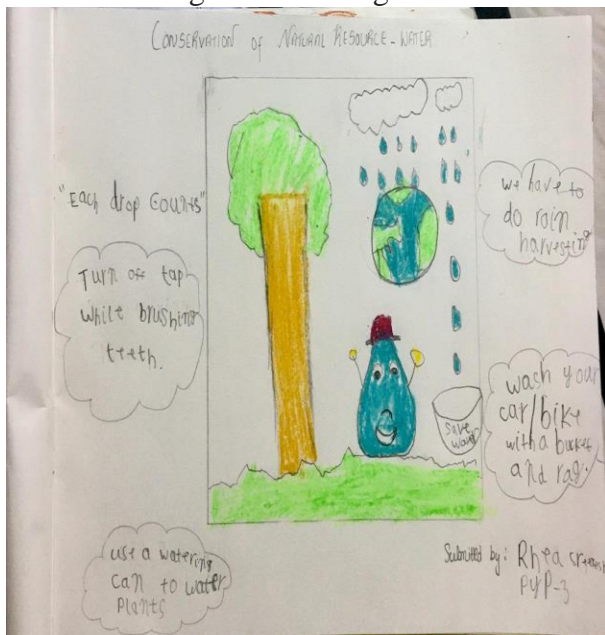 CONSERVATION OF NATURAL RESOURCE - WATER
"EACH drop Counts"
Turn off tap
while brushing
teeth.
we have to
do rain
harvesting
wash your
car/bike
with a bucket
and rag.
save
water
use a watering
can to water
plants
Submitted by: Rhea
PYP-3